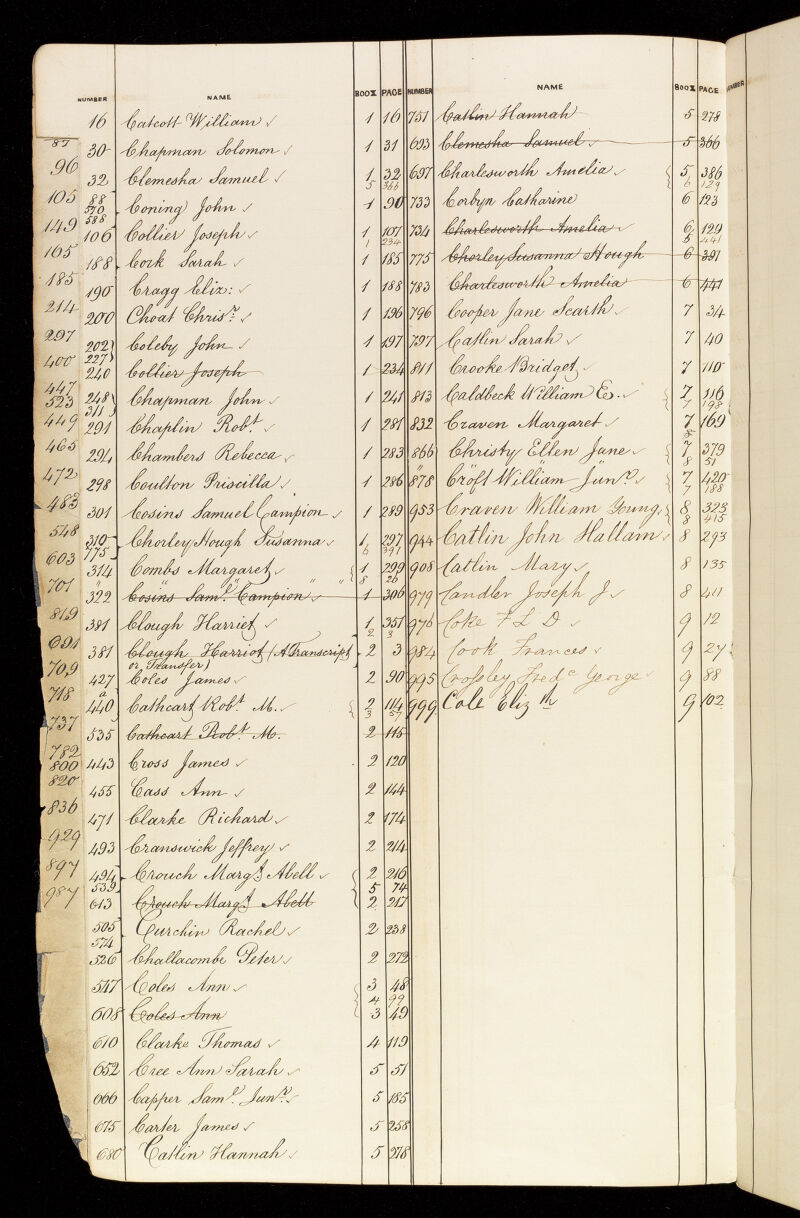 NUMBER NAME BOOK PAGE
16 Catcott William 1 16
30 Chapman Solomon 1 31
32 Clemesha Samuel 1 32
5 366
88 Coning John 1 90
570
588
106 Collier Joseph 1 107
1 234
188 Cork Sarah 1 185
190 Cragg Eliz: 1 188
200 Choat Chrisr. 1 196
202 Coleby John 1 197
227
240 Collier Joseph 1 234
248 Chapman John 1 241
311
291 Chaplin Robt. 1 281
294 Chambers Rebecca 1 283
298 Coulton Priscilla 1 286
301 Cosins Samuel Campion 1 289
310 Chorley Hough Susanna 1 297
775 6 391
314 Combs Margaret 1 299
8 26
322 Cosins Saml. Campion 1 306
381 Clough Harriet 1 351
2 3
381 Clough Harriot (A Transcript 2 3
or Transfer)
427 Coles James 2 90
440 Cathcart Robt. M. 2 114
3 57
535 Cathcart Robt. M. 2 115
443 Cross James 2 120
455 Cass Ann 2 144
471 Clarke Richard 2 174
493 Cranswick Jeffrey 2 214
494 Crouch Margt. Abell 2 216
539 5 74
613 Crouch Margt. Abell 2 217
505 Curchin Rachel 2 238
574
526 Challacombe Peter 2 272
547 Coles Ann 3 48
4 99
608 Coles Ann 3 49
610 Clarke Thomas 4 119
652 Cree Ann Sarah 5 51
666 Capper Saml. Junr. 5 185
675 Carter James 5 258
680 Catlin Hannah 5 278
NUMBER NAME BOOK PAGE
751 Catlin Hannah 5 278
693 Clemesha Samuel 5 366
697 Charlesworth Amelia 5 386
6 129
733 Corbyn Catharine 6 123
734 Charlesworth Amelia 6 129
6 441
775 Chorley Susanna Hough 6 391
783 Charlesworth Amelia 6 441
796 Cooper Jane Scarth 7 34
797 Catlin Sarah 7 40
811 Crooke Bridget 7 110
813 Caldbeck William E. 7 116
7 198
832 Craven Margaret 7 169
866 Christy Ellen Jane 7 379
8 51
878 Croft William Junr. 7 420
7 188
953 Craven William Young 8 323
8 415
944 Catlin John Hallam 8 293
908 Catlin Mary 8 135
979 Candler Joseph J 8 411
976 Coke F L D 9 12
984 Cook Frances 9 27
995 Crossley Fredc George 9 88
999 Cole Elizth 9 102
NUMBER
87
96
105
149
165
185
214
297
400
447
523
449
465
472
483
548
603
701
819
691
709
718
737
782
800
820
836
929
897
987